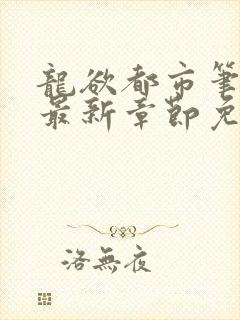 龍欲都市筆
最新章節免
洛無夜